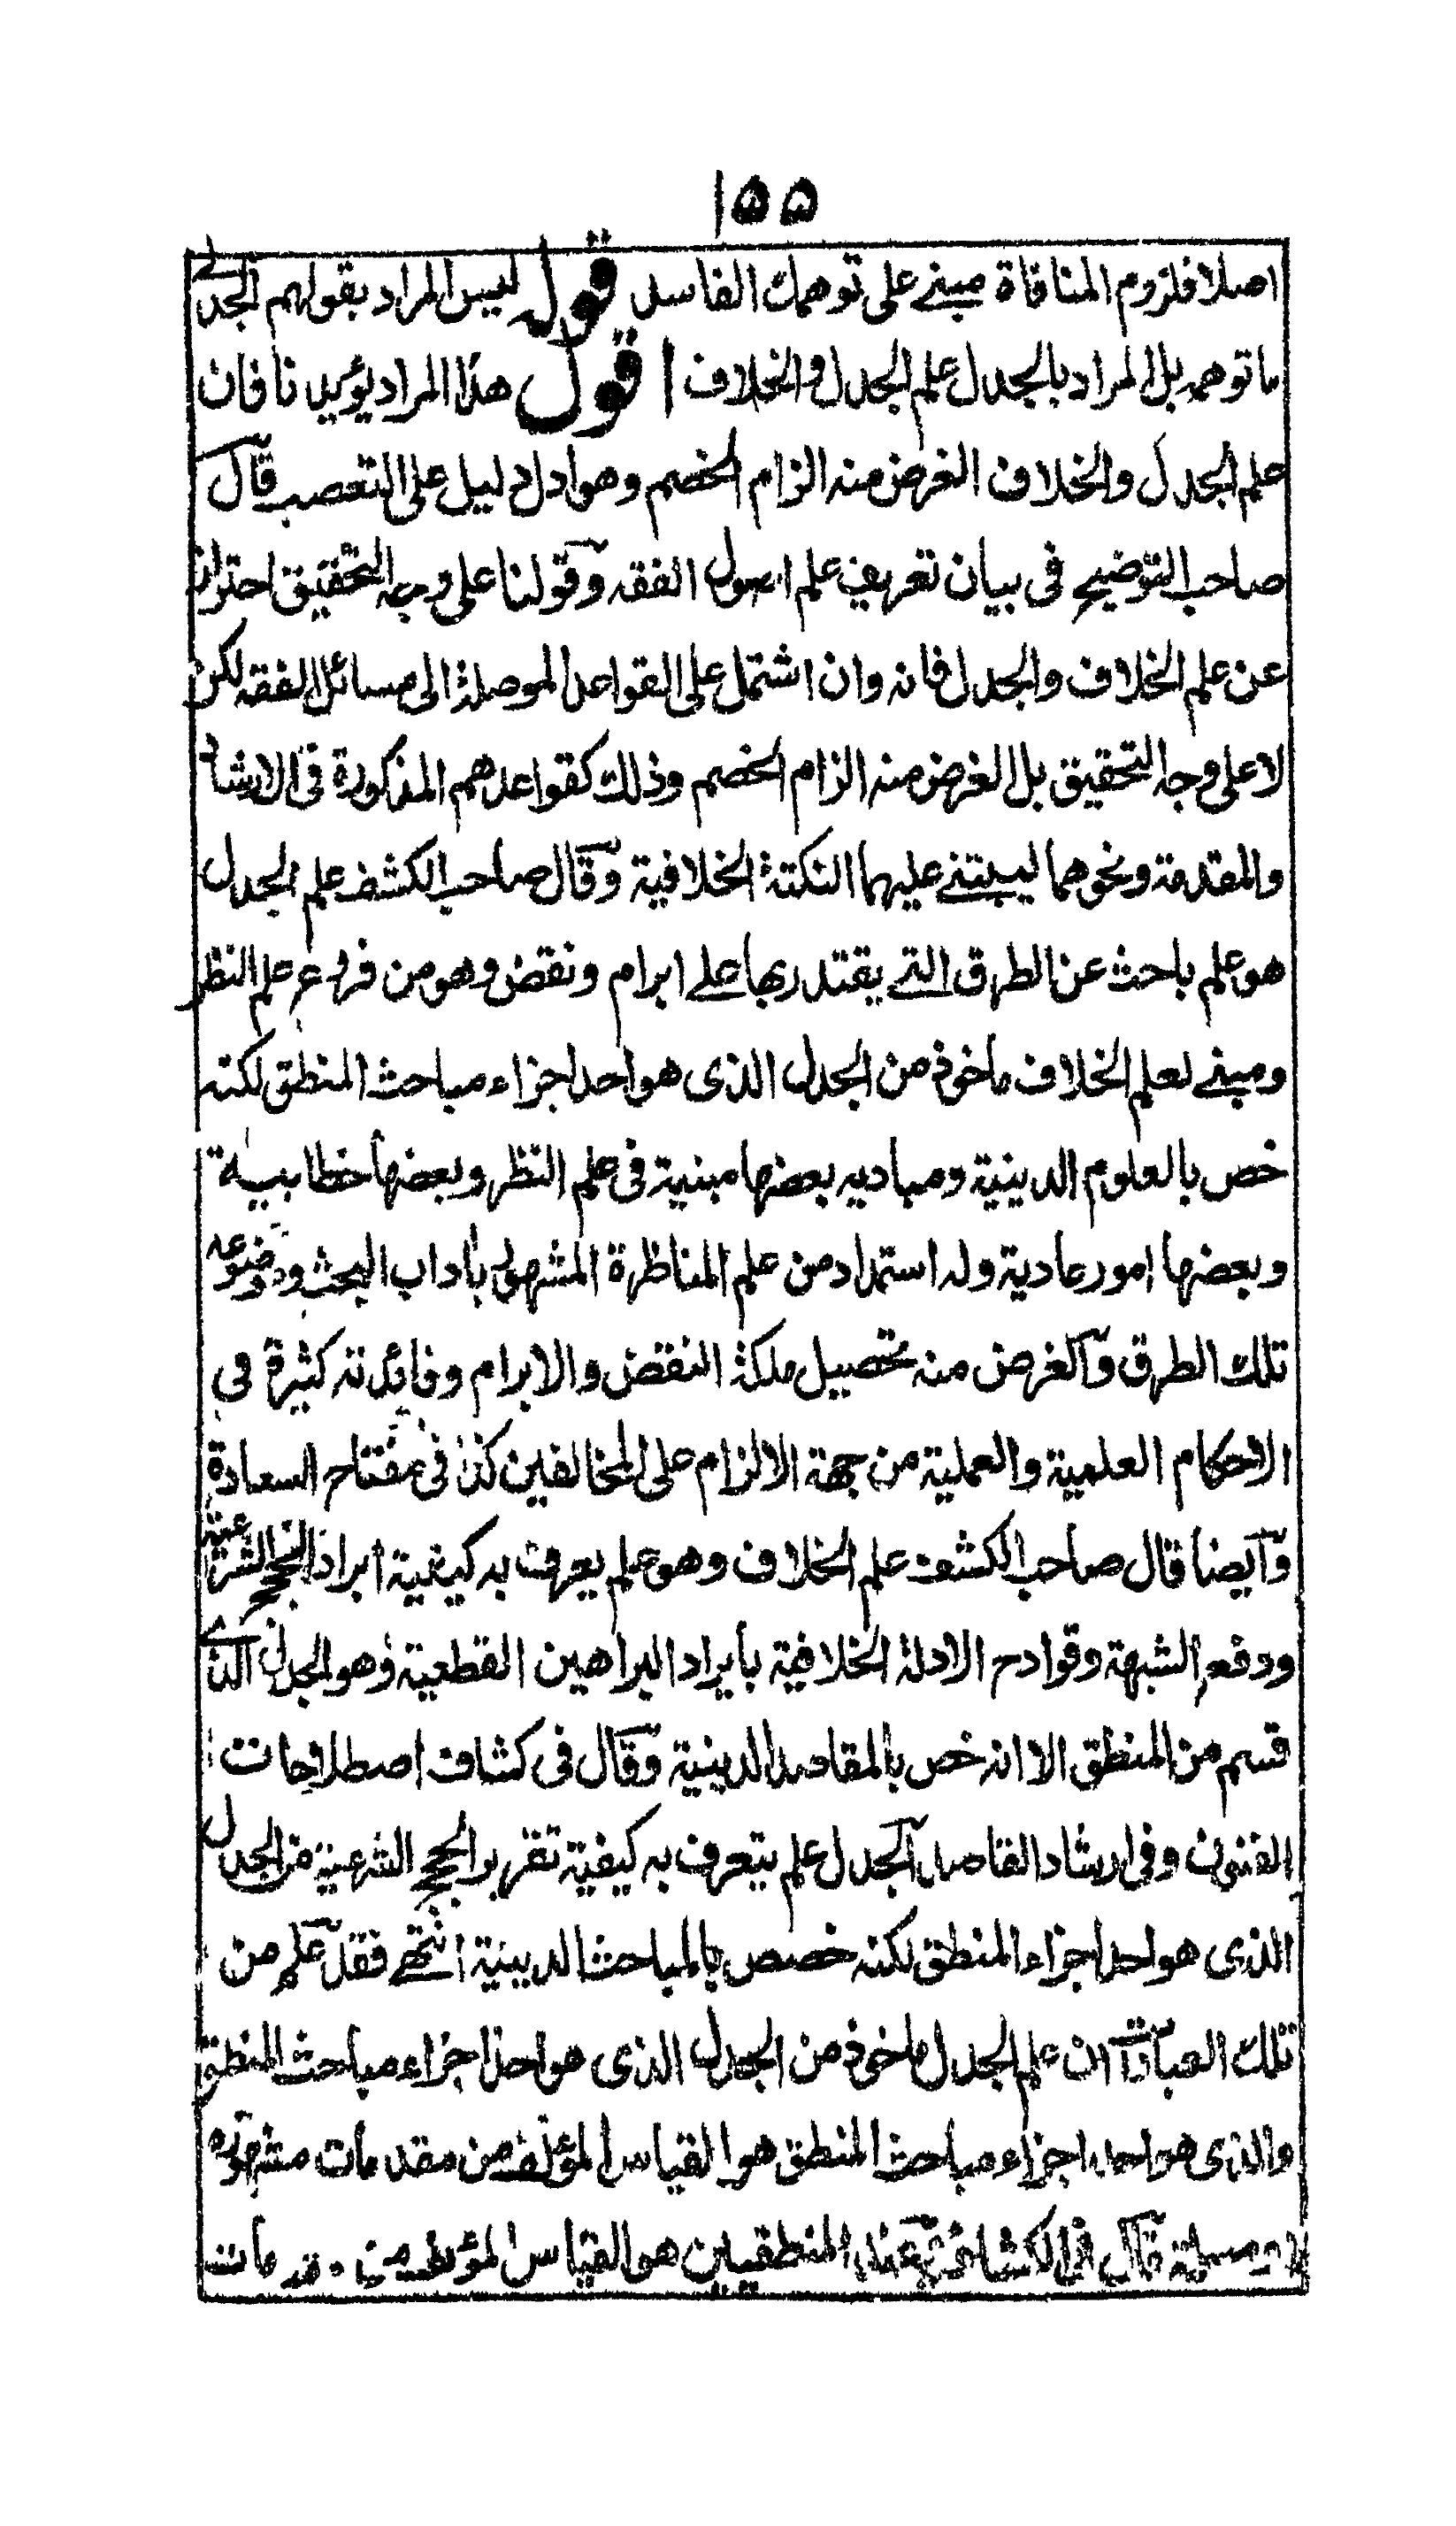 ١٥٥
اصلا فلزوم المنافاة مبنے علی توهمك الفاسد قوله ليس المراد بقولهم الجدلے
ما توهمه بل المراد بالجدل علم الجدل والخلاف اقول هذا المراد يؤيد نا فان
علم الجدل والخلاف الغرض منه الزام الخصم وهو ادل دليل علی التعصب قال
صاحب التوضيح فی بيان تعريف علم اصول الفقه وقولنا علی وجه التحقيق احتراز
عن علم الخلاف والجدل فانه وان اشتمل علی القواعد الموصلة الی مسائل الفقه لكن
لا علی وجه التحقيق بل الغرض منه الزام الخصم وذلك كقواعدهم المذكورة فی الارشاد
والمقدمة ونحوهما ليبتنے عليهما النكتة الخلافية وقال صاحب الكشف علم الجدل
هو علم باحث عن الطرق التے يقتدر بها علے ابرام ونقض وهو من فروع علم النظر
ومبنے لعلم الخلاف ماخوذ من الجدل الذی هو احد اجزاء مباحث المنطق لكنه
خص بالعلوم الدينية ومباديه بعضها مبنية فی علم النظر وبعضها خطابية
وبعضها امور عادية وله استمداد من علم المناظرة المشهور بآداب البحث وموضوعه
تلك الطرق والغرض منه تحصيل ملكة النقض والابرام وفائدته كثيرة فی
الاحكام العلمية والعملية من جهة الالزام علی المخالفين كذا فی مفتاح السعادة
وايضا قال صاحب الكشف علم الخلاف وهو علم يعرف به كيفية ايراد الحجج الشرعية
ودفع الشبهة وقوادح الادلة الخلافية بايراد البراهين القطعية وهو الجدل الذے
قسم من المنطق الا انه خص بالمقاصد الدينية وقال فی كشاف اصطلاحات
الفنون وفی ارشاد القاصد الجدل علم يتعرف به كيفية تقرير الحجج الشرعية من الجدل
الذی هو احد اجزاء المنطق لكنه خصص بالمباحث الدينية انتهے فقد علم من
تلك العبارات ان علم الجدل ماخوذ من الجدل الذی هو احد اجزاء مباحث المنطق
والذی هو احد اجزاء مباحث المنطق هو القياس المؤلف من مقدمات مشهورة
مسلمة قال فی الكشاف عند المنطقيين هو القياس المؤلف من مقدمات